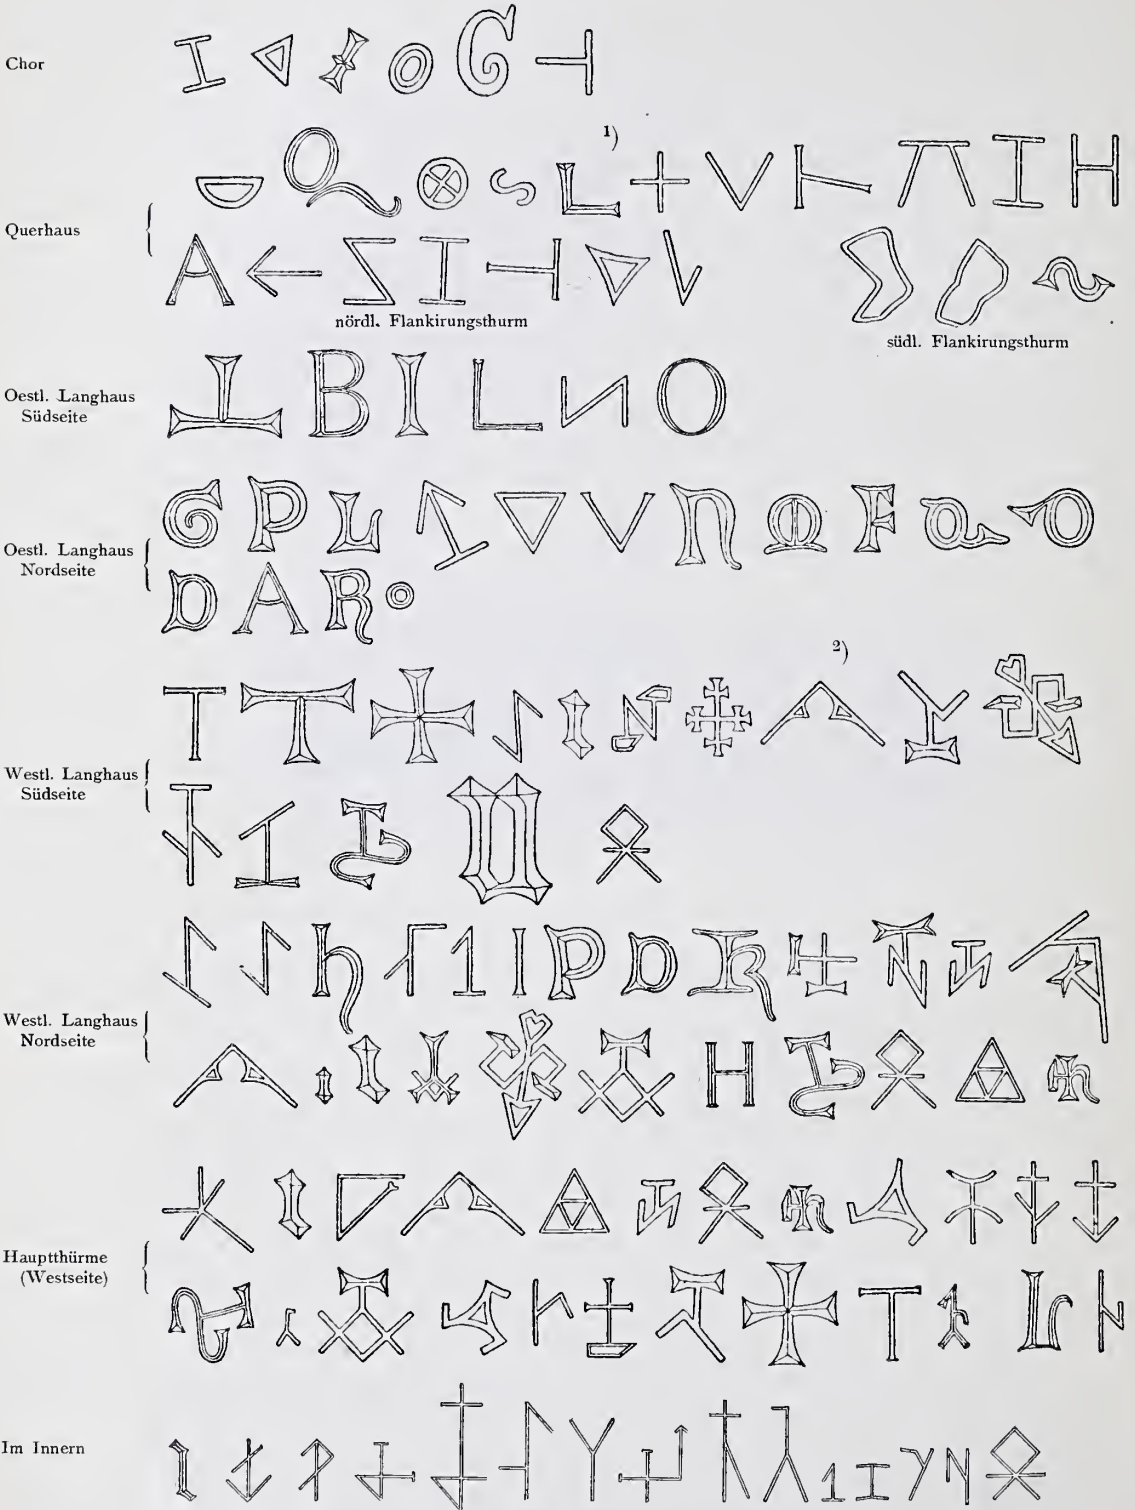 Chor
1)
Querhaus
nördl. Flankirungsthurm
südl. Flankirungsthurm
Oestl. Langhaus
Südseite
Oestl. Langhaus
Nordseite
2)
Westl. Langhaus
Südseite
Westl. Langhaus
Nordseite
Hauptthürme
(Westseite)
Im Innern